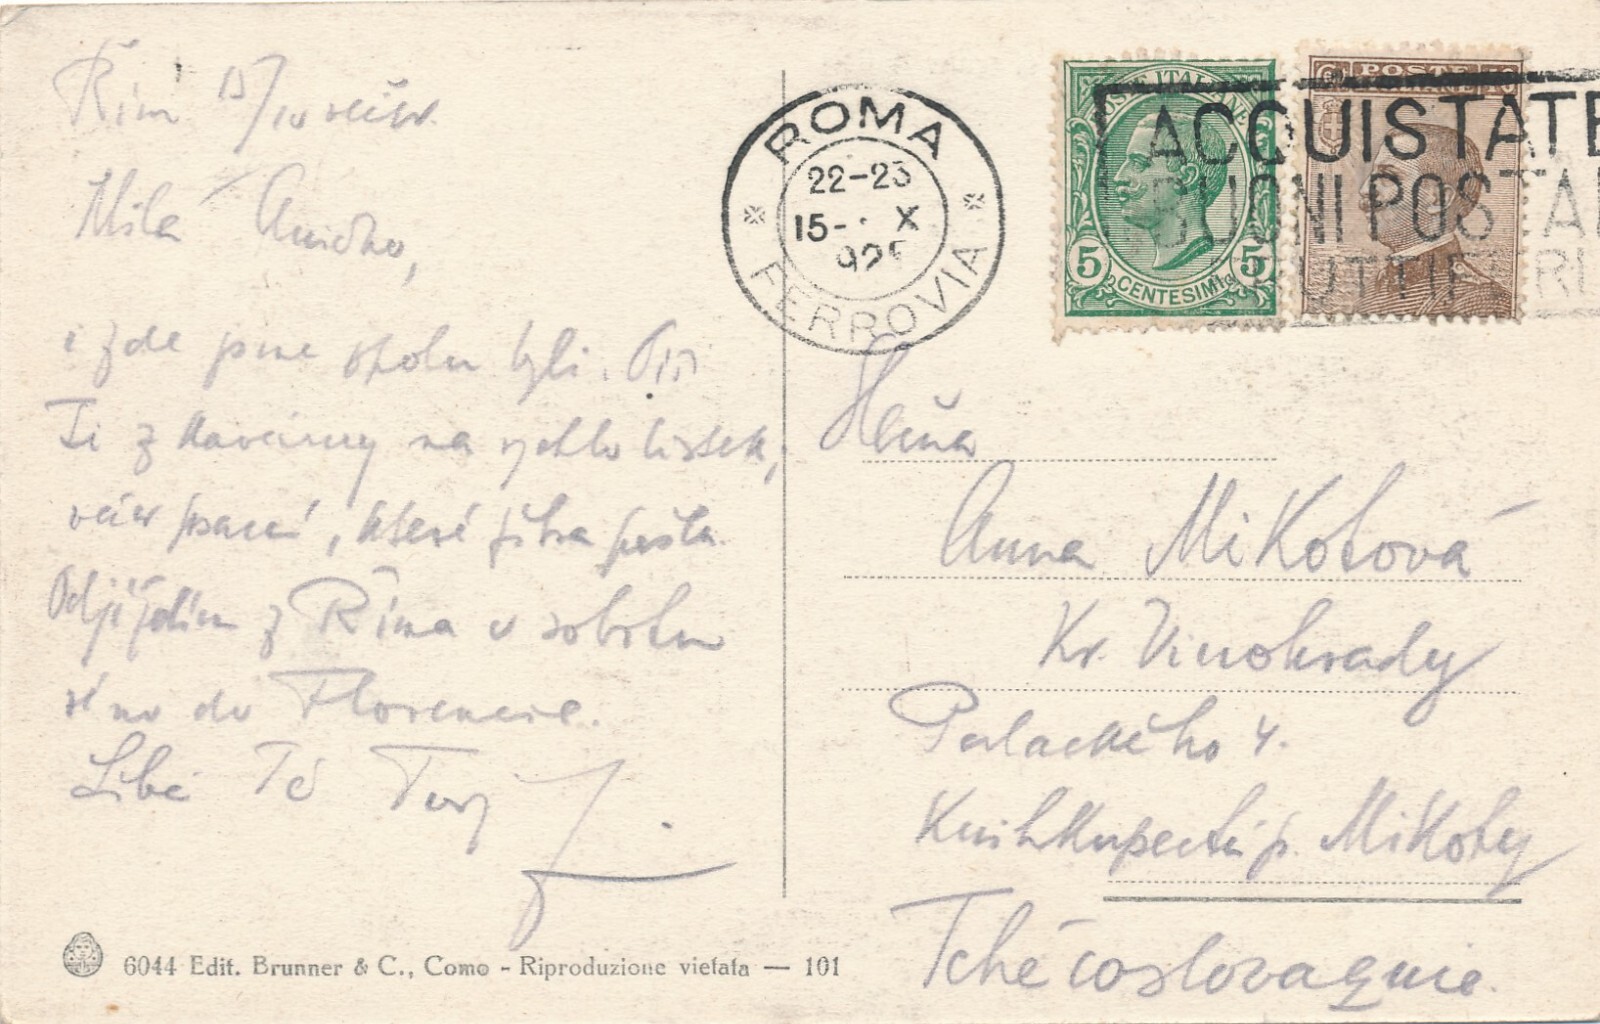 Řím 15/10 večer.
Milá Aničko,
i zde jsme spolu byli. Píši
Ti z kavárny na rychlo lístek,
večer psaní, které zítra pošlu.
Odjíždím z Říma v sobotu
ráno do Florencie.
Líbá Tě Tvůj
6044 Edit. Brunner & C., Como - Riproduzione vietata — 101
ROMA
22-23
15- X
925
FERROVIA
POSTE ITALIANE
5 5
CENTESIMI
POSTE
ACQUISTATE
BUONI POSTAL
FRUTTIFERI
Slečna
Anna Mikotová
Kr. Vinohrady
Palackého 4.
Knihkupectví p. Mikoty
Tchécoslovaquie.